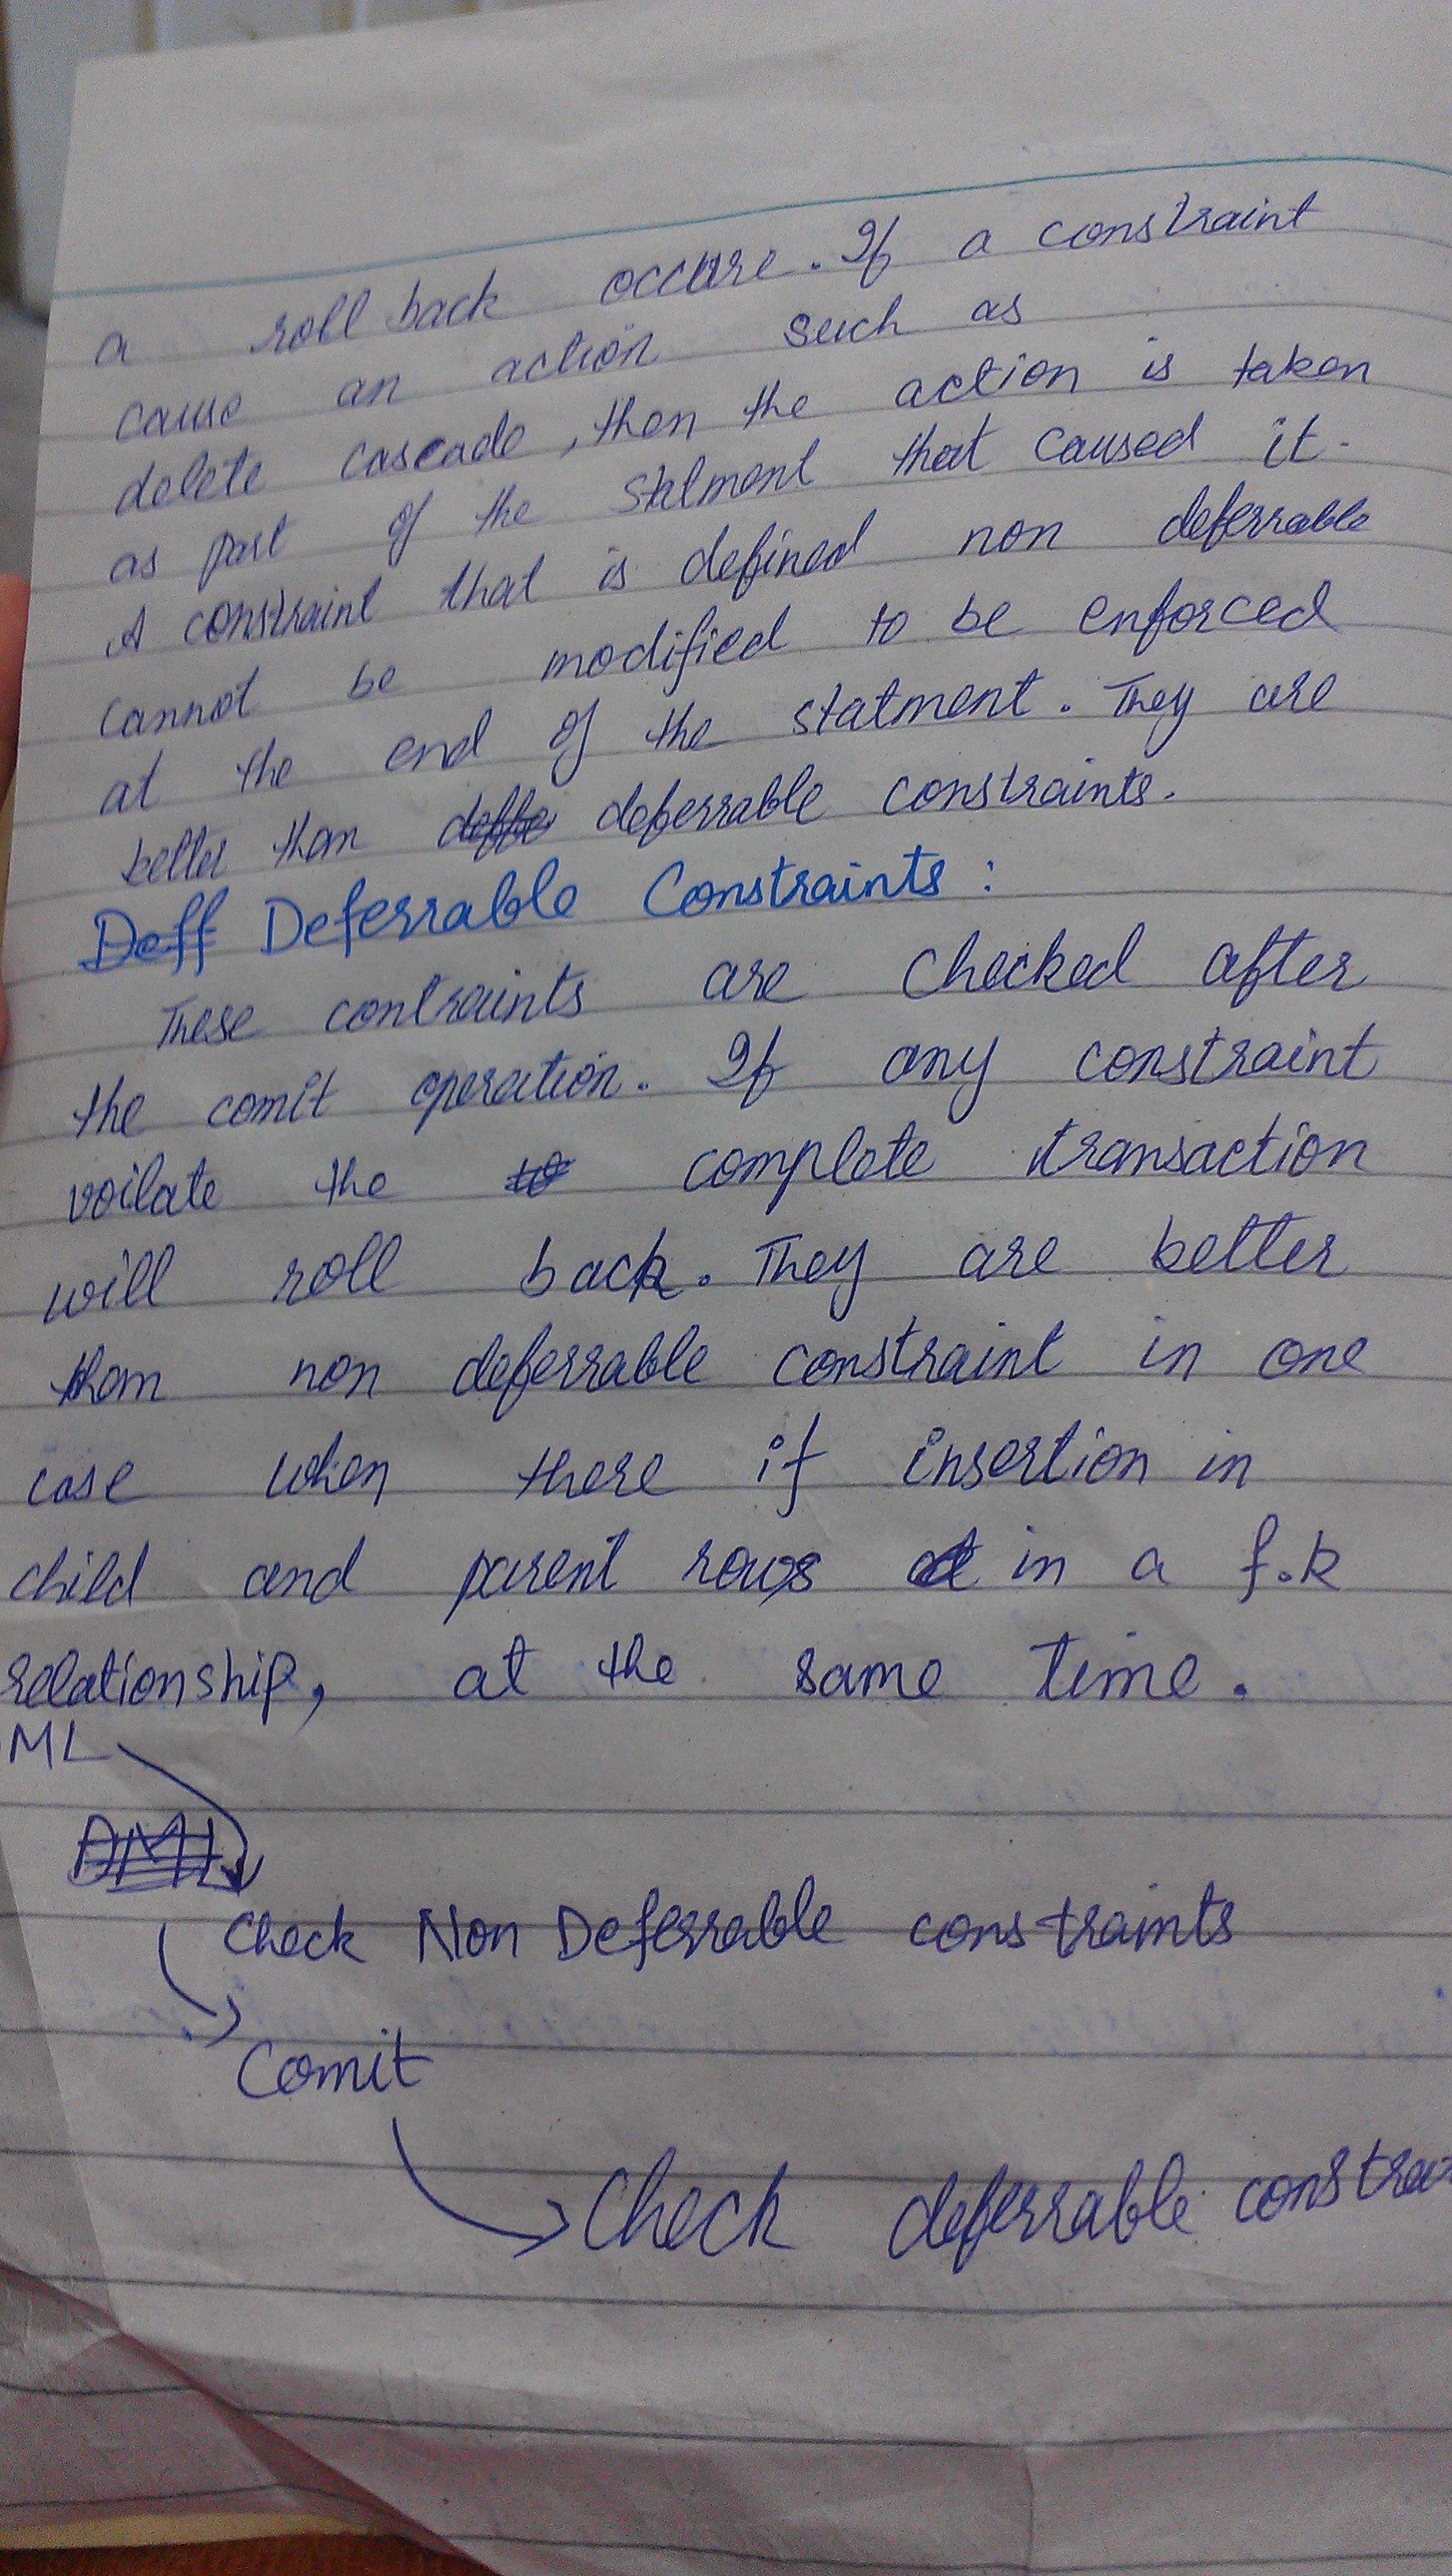 a roll back occure. If a constraint
cause an action such as
delete cascade, then the action is taken
as part of the statment that caused it.
A constraint that is defined non deferrable
cannot be modified to be enforced
at the end of the statment. They are
better than deferrable constraints.
Deff Deferrable Constraints:
These contraints are checked after
the comit operation. If any constraint
voilate the to complete transaction
will roll back. They are better
than non deferrable constraint in one
case when there if insertion in
child and parent rows in a f.k
relationship, at the same time.
ML
DML
Check Non Deferrable constraints
Comit
Check deferrable constrai